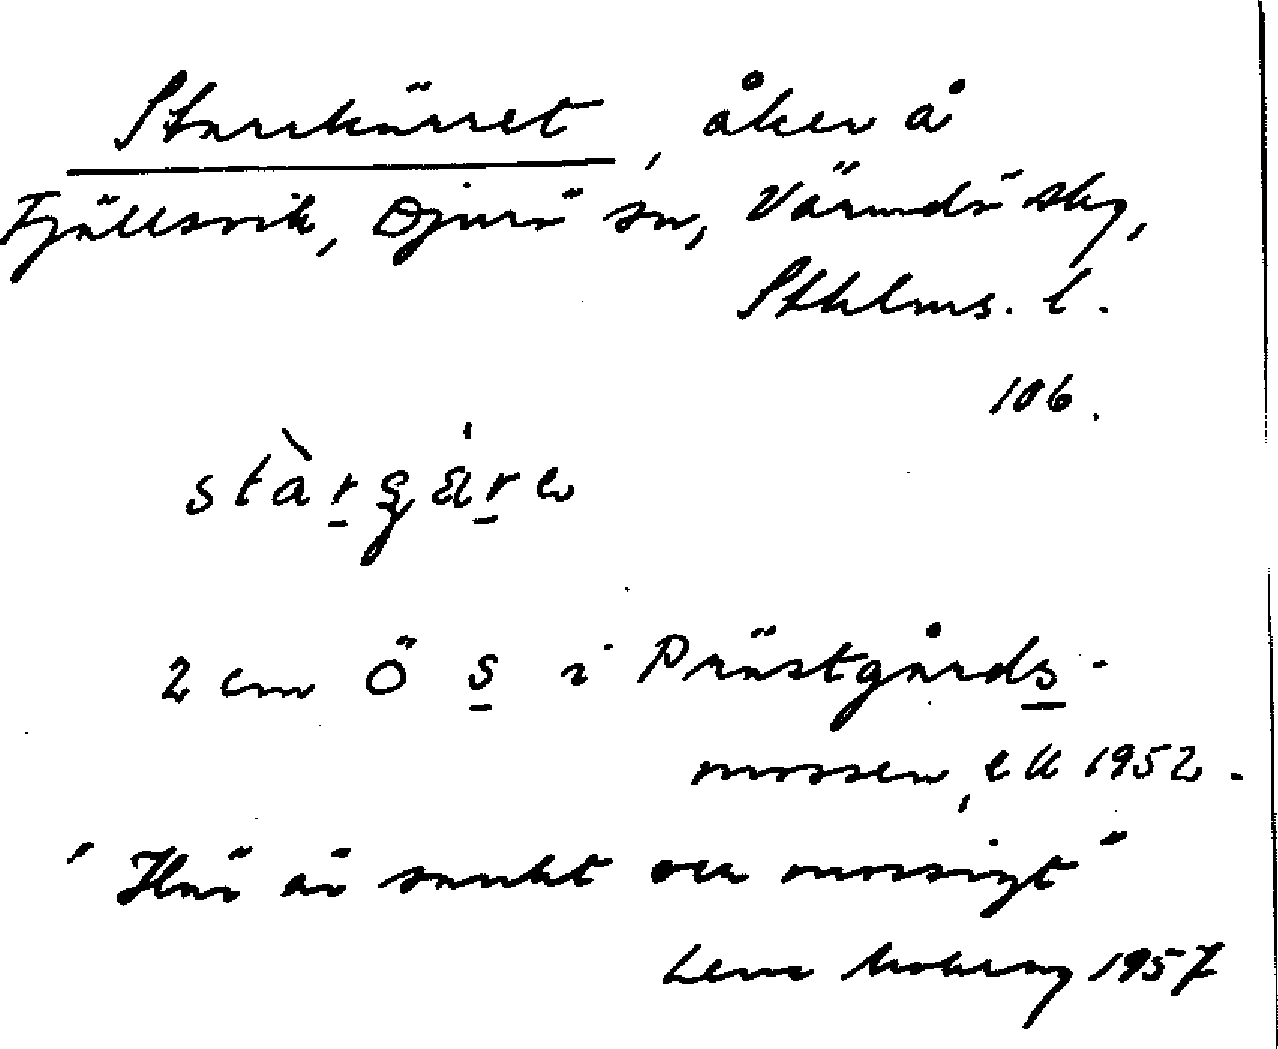 Starrkärret, åker å
Fjällsvik, Djurö sn, Värmdö skg,
Sthlms. l.
106.
stàrçä̀re
2 cm Ö s i Prästgårds-
mossen, ek 1952.
"Här är sankt och mossigt"
Lena 1957